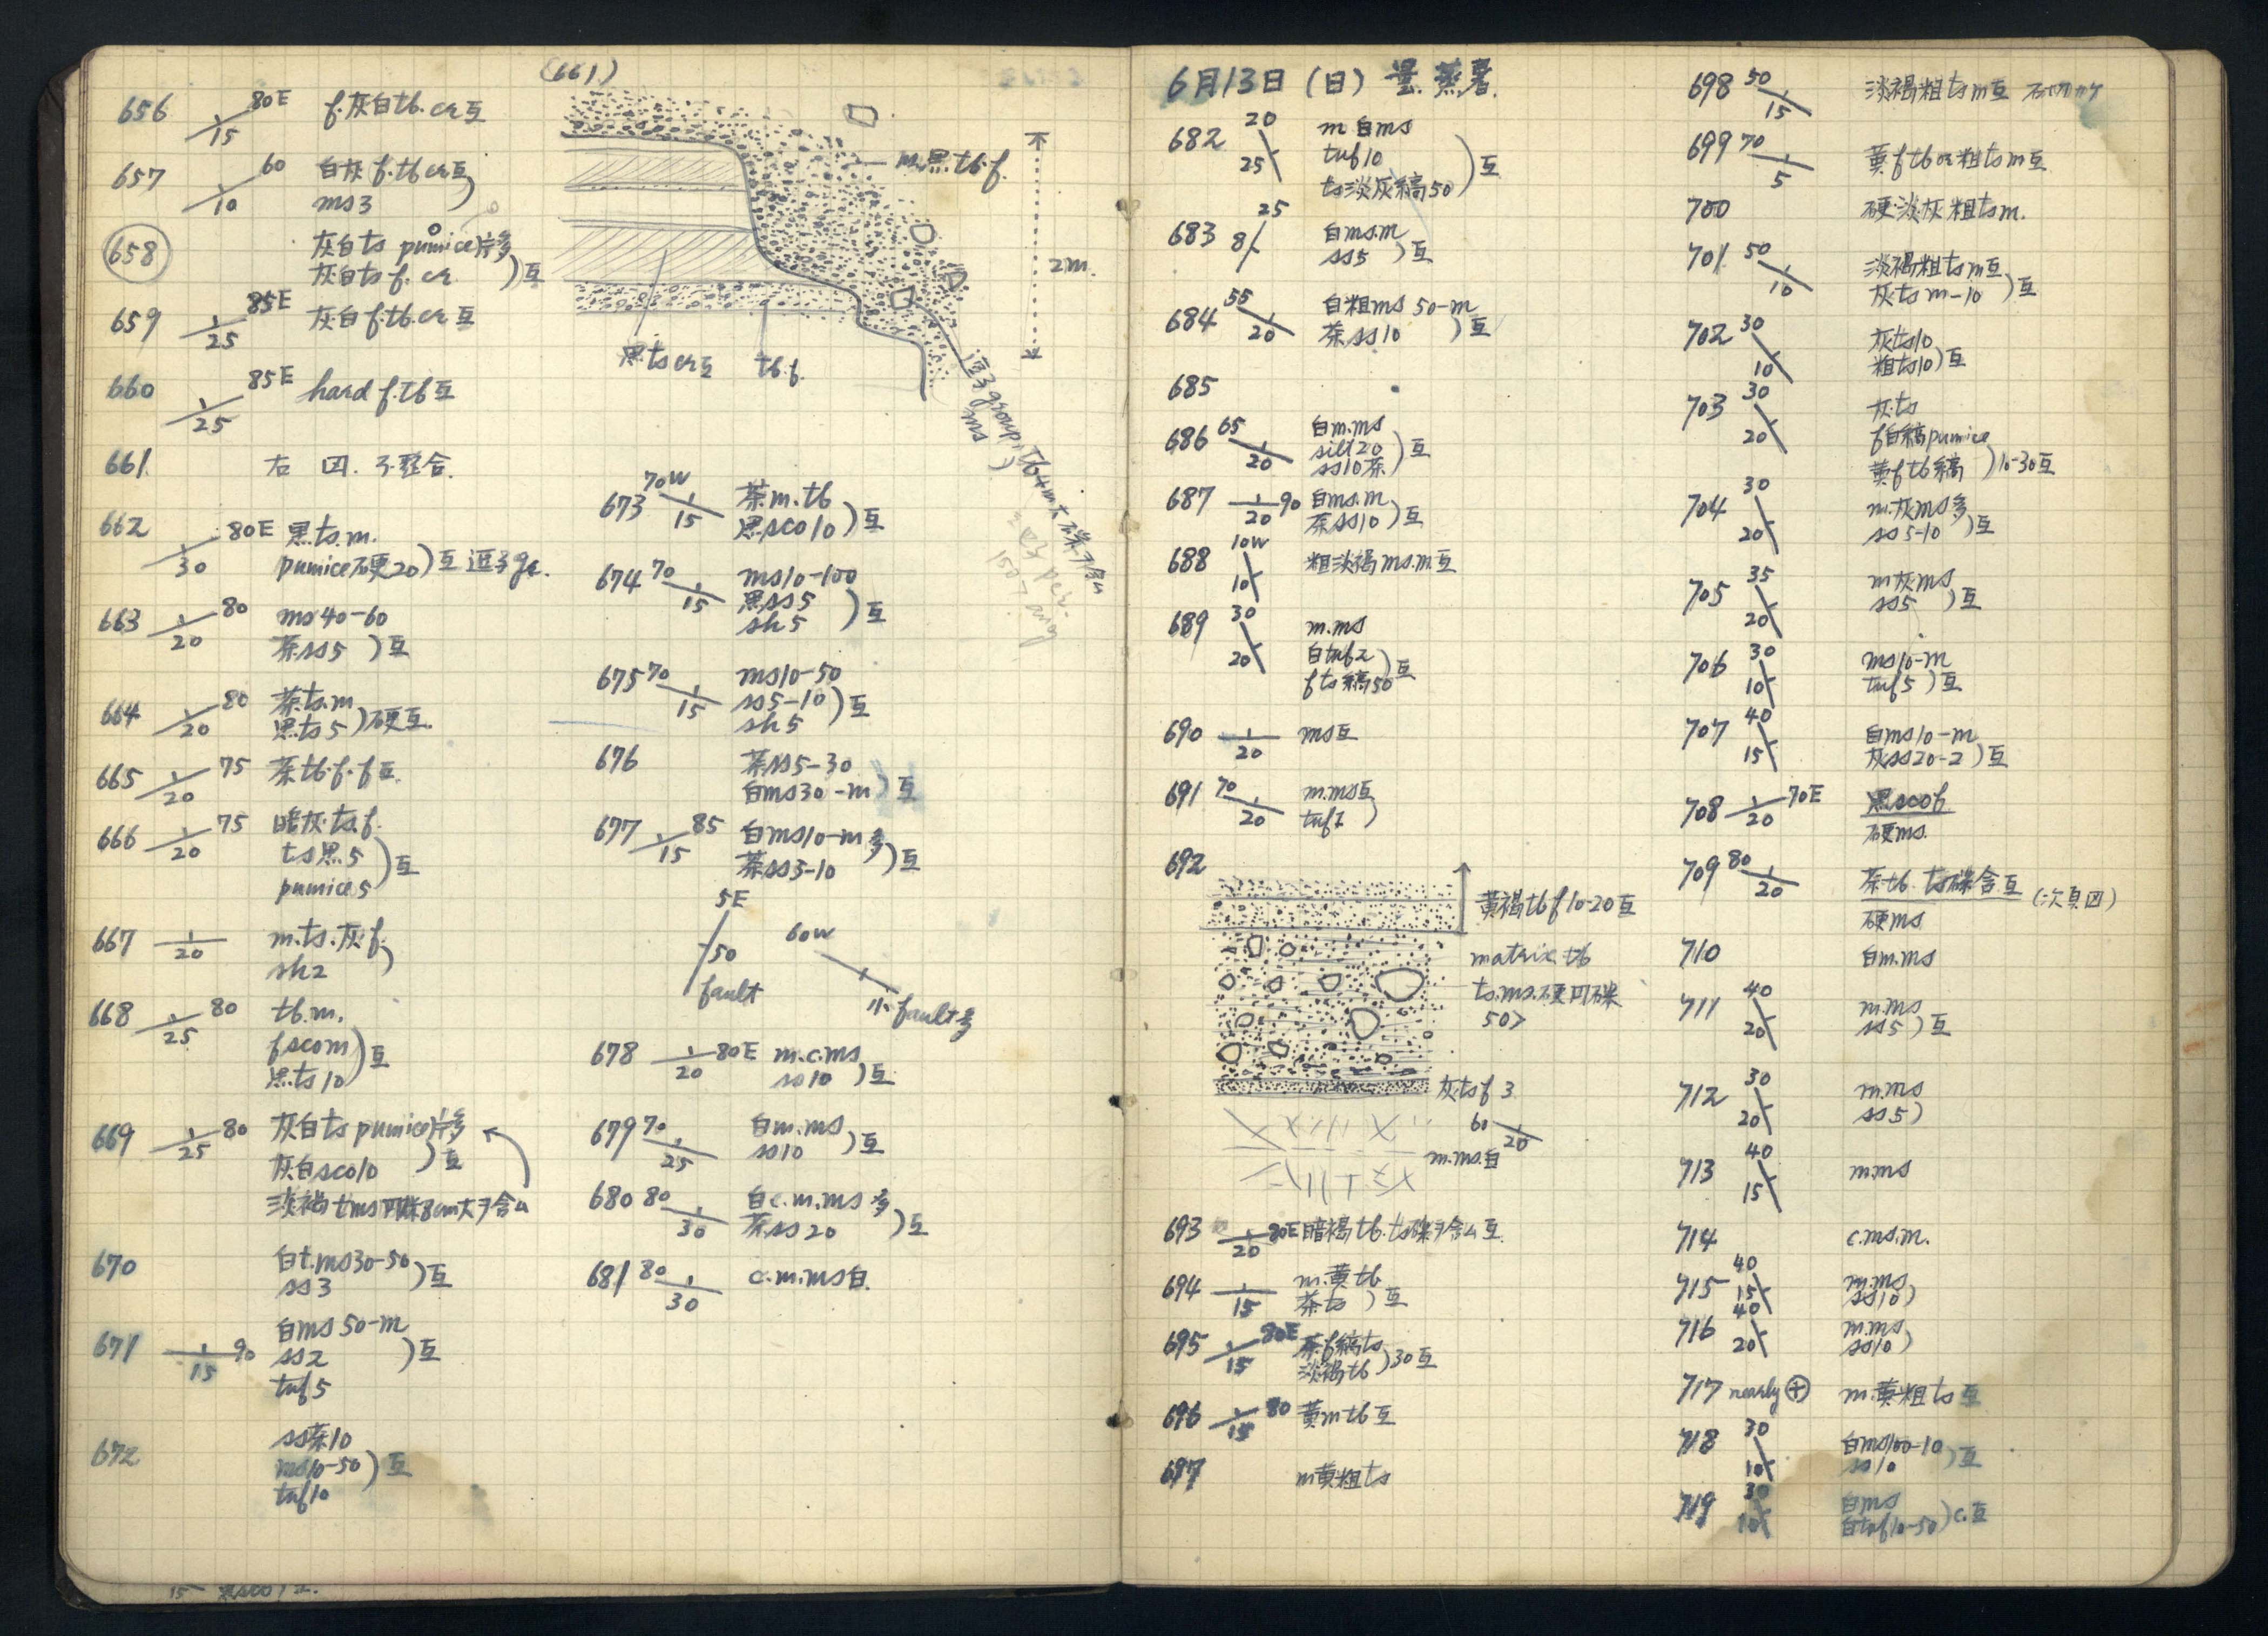 656 80E 15 f.灰白tb.cr互
657 60 10 白灰f.tb cr互
ms3 )
658 灰白ts pumice片多
灰白ts f. cr )互
659 85E 25 灰白f.tb.cr互
660 85E 25 hard f.tb互
661 右図.不整合.
662 80E 30 黒ts.m.
pumice硬20)互 逗子gr.
663 80 20 ms40-60
茶ss5 )互
664 80 20 茶ts.m
黒ts5 )硬互.
665 75 20 茶tb.f.f互.
666 75 20 暗灰.ts.f.
ts黒5
pumice5 )互
667 20 m.ts.灰f.
sh2 )
668 80 25 tb.m.
fscom
黒ts10 )互
669 80 25 灰白ts pumice片多
灰白sco10 )互
淡褐tms円礫8cm大ヲ含ム
670 白t.ms30-50
ss3 )互
671 90 15 白ms50-m
ss2 )互
tuf5
672 ss茶10
ms10-50 )互
tuf10
(661)
m.黒tb.f.
2m.
黒ts cr互 tb.f.
逗子group
ms
673 70W 15 茶m.tb
黒sco10 )互
674 70 15 ms10-100
黒ss5
sh5 )互
675 70 15 ms10-50
ss5-10
sh5 )互
676 茶ss5-30
白ms30-m )互
677 85 15 白ms10-m多
茶ss3-10 )互
5E
50
fault
60W
小fault多
678 80E 20 m.c.ms
ss10 )互
679 70 25 白m.ms
ss10 )互
680 80 30 白c.m.ms多
茶ss20 )互
681 80 30 c.m.ms白.
6月13日(日) 曇.蒸暑.
682 20 25 m白ms
tuf10
ts淡灰縞50 )互
683 25 8 白ms.m
ss5 )互
684 55 20 白粗ms 50-m
茶ss10 )互
685
686 65 20 白m.ms
silt20
ss10茶 )互
687 90 20 白ms.m
茶ss10 )互
688 10W 10 粗淡褐ms.m.互
689 30 20 m.ms
白tuf2
f ts縞50 )互
690 20 ms互
691 70 20 m.ms互
tuf1 )
692
黄褐tb f10-20互
matrix tb
ts.ms.硬円礫
50>
灰ts f 3
60 20
m.ms.白
693 80E 20 暗褐tb.ts礫ヲ含ム互
694 15 m.黄tb
茶ts )互
695 80E 15 茶f縞ts
淡褐tb )30互
696 80 15 黄m tb互
697 m黄粗ts
698 50 15 淡褐粗ts m互
699 70 5 黄f tb or粗ts m互
700 硬.淡灰粗ts m.
701 50 10 淡褐粗ts m互
灰ts m-10 )互
702 30 10 灰ts10
粗ts10 )互
703 30 20 灰.ts
f白縞pumice
黄f tb縞 )10-30互
704 30 20 m.灰ms多
ss5-10 )互
705 35 20 m灰ms
ss5 )互
706 30 10 ms10-m
tuf5 )互
707 40 15 白ms10-m
灰ss20-2 )互
708 70E 20 黒scof
硬ms.
709 80 20 茶tb.ts礫含互 (次頁図)
硬ms
710 白m.ms
711 40 20 m.ms
ss5 )互
712 30 20 m.ms
ss5 )
713 40 15 m.ms
714 c.ms.m.
715 40 15 m.ms
ss10 )
716 40 20 m.ms
ss10 )
717 nearly m.黄粗ts互
718 30 10 白ms100-10
ss10 )互
719 30 10 白ms
白tuf10-50 )c.互